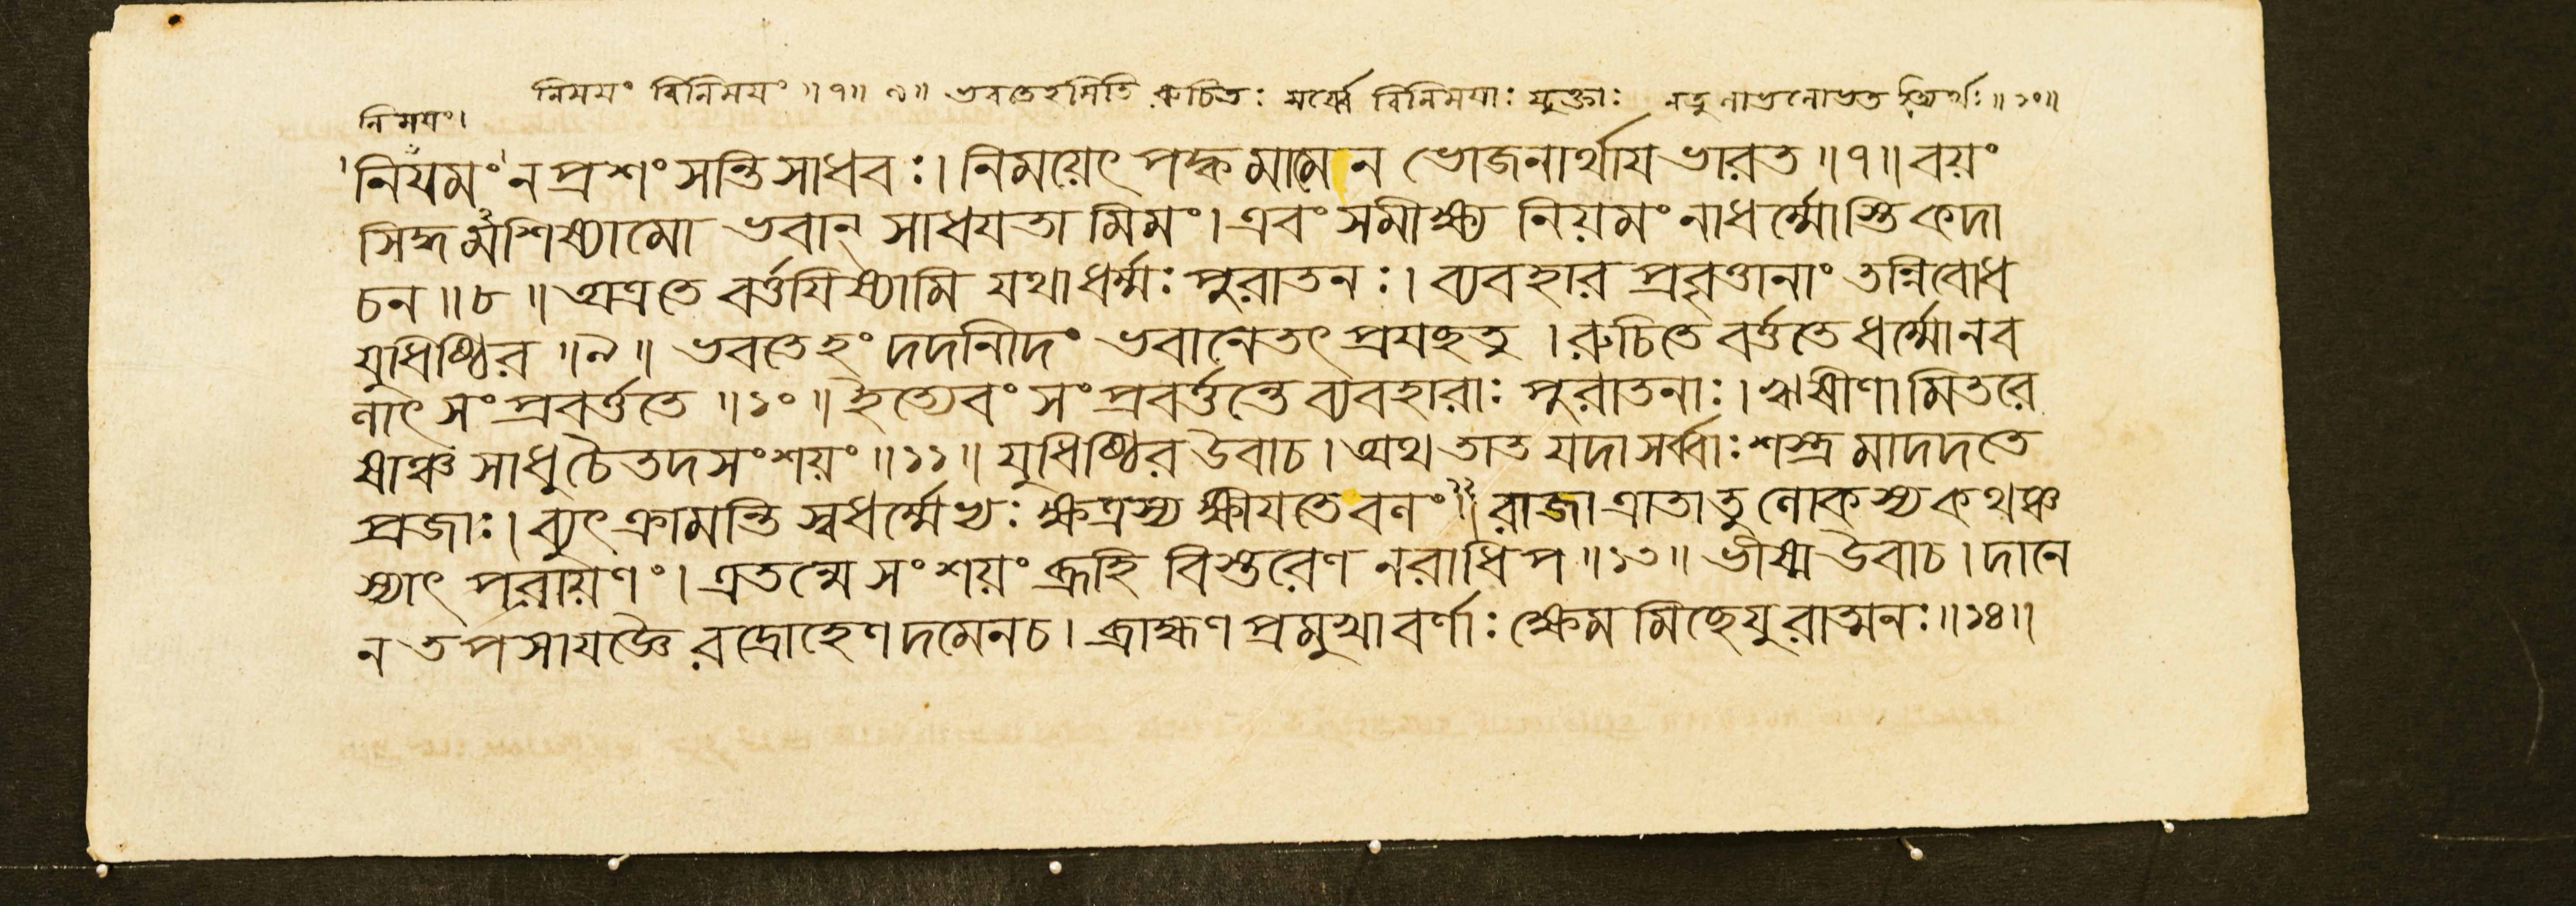 নিময়ং বিনিময়ং ॥৭॥ ৯॥ ভবতেহমিতি রুচিতঃ বিনিময়াঃ যুক্তাঃ নতু ॥১০॥
নিময়ং।
নিয়মং ন প্রশংসন্তি সাধবঃ। নিময়েৎ পক্বমামেন ভোজনার্থায ভারত ॥৭॥ বয়ং
সিদ্ধমশিষ্যামো ভবান্ সাধযতামিমং। এবং সমীক্ষ্য নিয়মং নাধর্ম্মোস্তি কদা
চন ॥৮॥ অত্রতে বর্ত্তযিষ্যামি যথাধর্ম্মঃ পুরাতনঃ। ব্যবহার প্রবৃত্তানাং তন্নিবোধ
যুধিষ্ঠির ॥৯॥ ভবতেহং দদানীদং ভবানেতৎ প্রযছতু। রুচিতে বর্ত্ততে ধর্ম্মোনব
লাৎ সংপ্রবর্ত্ততে ॥১০॥ ইত্যেবং সংপ্রবর্ত্তন্তে ব্যবহারাঃ পুরাতনাঃ। ঋষীণামিতরে
ষাঞ্চ সাধুচৈতদসংশয়ং ॥১১॥ যুধিষ্ঠির উবাচ। অথ তাত যদা সর্ব্বাঃ শস্ত্রমাদদতে
প্রজাঃ। ব্যুৎক্রামন্তি স্বধর্ম্মেভ্যঃ ক্ষত্রস্য ক্ষীযতে বলং ॥১২ রাজা ত্রাতা তু লোকস্য কথঞ্চ
স্যাৎ পরায়ণং। এতন্মে সংশয়ং ব্রূহি বিস্তরেণ নরাধিপ ॥১৩॥ ভীষ্ম উবাচ। দানে
ন তপসা যজ্ঞৈরদ্রোহেণ দমেনচ। ব্রাহ্মণ প্রমুখা বর্ণাঃ ক্ষেমমিছেযুরাত্মনঃ ॥১৪॥